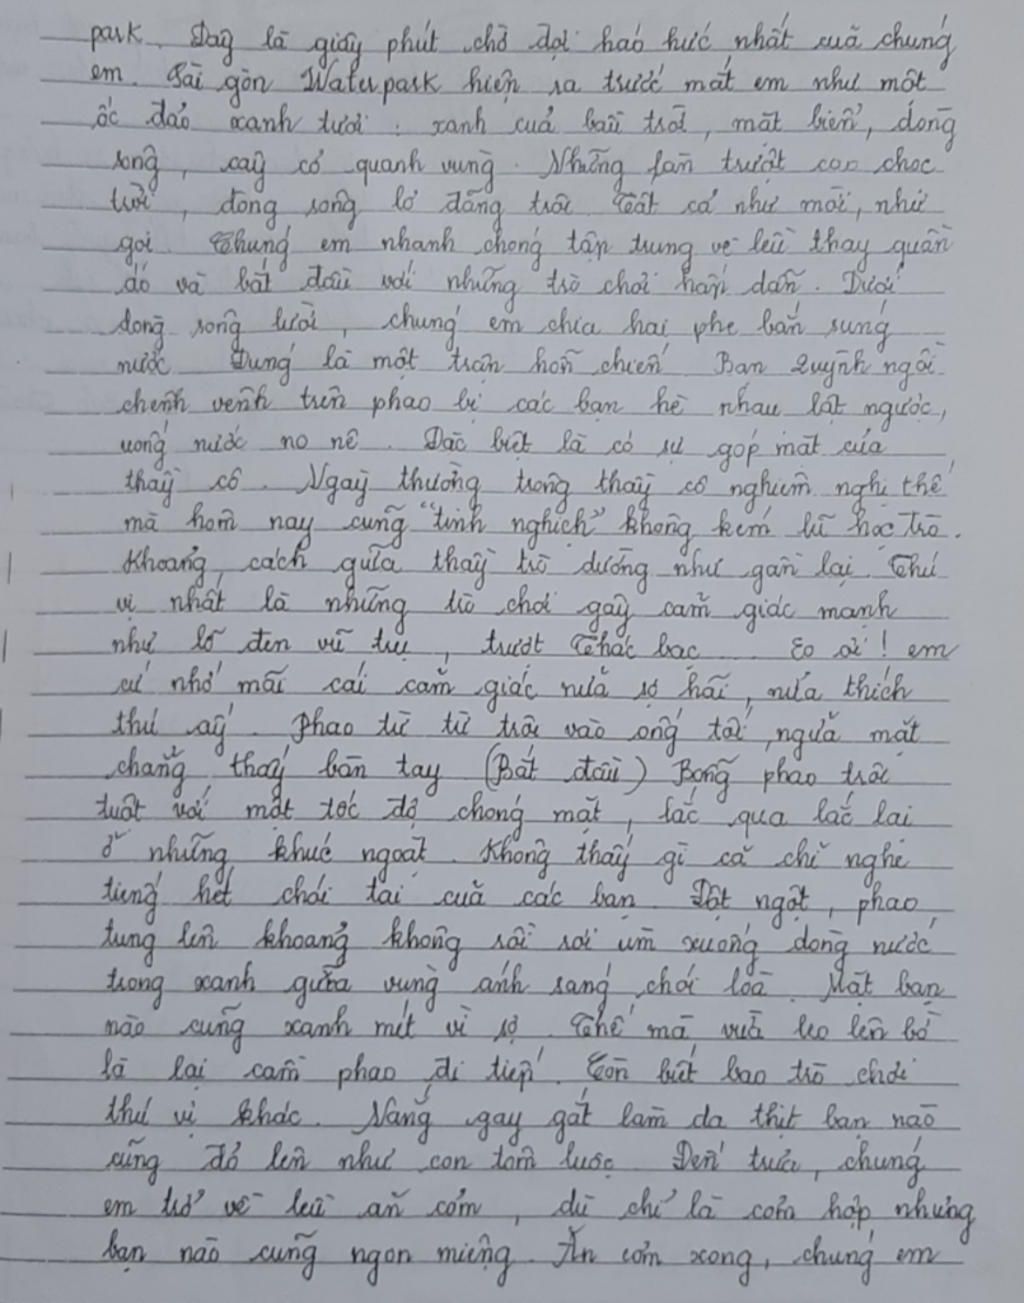 park. Đây là giây phút chờ đợi háo hức nhất của chúng
em. Sài gòn Waterpark hiện ra trước mắt em như một
ốc đảo xanh tươi : xanh của bầu trời, mặt biển, dòng
sông, cây cỏ quanh vùng. Những làn trượt cao chọc
trời, dòng sông lờ đãng trôi. Tất cả như mời, như
gọi. Chúng em nhanh chóng tập trung về lều thay quần
đồ và bắt đầu với những trò chơi hấp dẫn. Dưới
dòng sông lười, chúng em chia hai phe bắn súng
nước. Đúng là một trận hỗn chiến. Bạn Quỳnh ngồi
chênh vênh trên phao bị các bạn hè nhau lật ngược,
uống nước no nê. Đặc biệt là có sự góp mặt của
thầy cô. Ngày thường trông thầy cô nghiêm nghị thế
mà hôm nay cũng "tinh nghịch" không kém lũ học trò.
Khoảng cách giữa thầy trò dường như gần lại. Thú
vị nhất là những trò chơi gây cảm giác mạnh
như lỗ đen vũ trụ, trượt thác bạc... Eo ơi! em
cứ nhớ mãi cái cảm giác nửa sợ hãi, nửa thích
thú ấy. Phao từ từ trôi vào ống tối, ngửa mặt
chẳng thấy bàn tay (Bắt đầu) Bỗng phao trôi
tuột với một tốc độ chóng mặt, lắc qua lắc lại
ở những khúc ngoặt. Không thấy gì cả chỉ nghe
tiếng hét chói tai của các bạn. Đột ngột, phao
tung lên khoảng không rồi rơi ùm xuống dòng nước
trong xanh giữa vùng ánh sáng chói loà. Mặt bạn
nào cũng xanh mét vì sợ. Thế mà vừa leo lên bờ
là lại cầm phao đi tiếp. Còn biết bao trò chơi
thú vị khác. Nắng gay gắt làm da thịt bạn nào
cũng đỏ lên như con tôm luộc. Đến trưa, chúng
em trở về lều ăn cơm, dù chỉ là cơm hộp nhưng
bạn nào cũng ngon miệng. Ăn cơm xong, chúng em